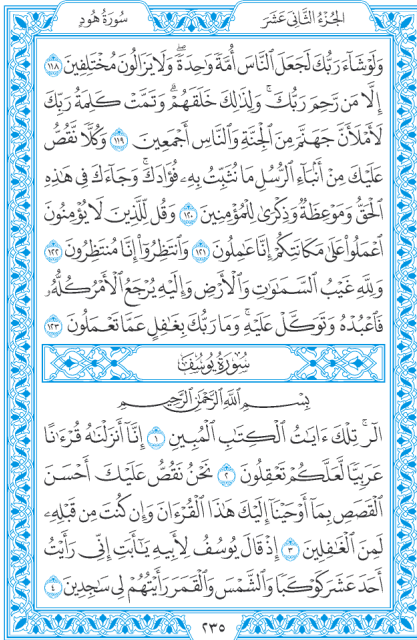 الجُزْءُ الثَّانِي عَشَرَ
سُورَةُ هُودٍ
وَلَوْ شَآءَ رَبُّكَ لَجَعَلَ ٱلنَّاسَ أُمَّةً وَٰحِدَةً ۖ وَلَا يَزَالُونَ مُخْتَلِفِينَ ١١٨
إِلَّا مَن رَّحِمَ رَبُّكَ ۚ وَلِذَٰلِكَ خَلَقَهُمْ ۗ وَتَمَّتْ كَلِمَةُ رَبِّكَ
لَأَمْلَأَنَّ جَهَنَّمَ مِنَ ٱلْجِنَّةِ وَٱلنَّاسِ أَجْمَعِينَ ١١٩ وَكُلًّا نَّقُصُّ
عَلَيْكَ مِنْ أَنۢبَآءِ ٱلرُّسُلِ مَا نُثَبِّتُ بِهِۦ فُؤَادَكَ ۚ وَجَآءَكَ فِى هَٰذِهِ
ٱلْحَقُّ وَمَوْعِظَةٌ وَذِكْرَىٰ لِلْمُؤْمِنِينَ ١٢٠ وَقُل لِّلَّذِينَ لَا يُؤْمِنُونَ
ٱعْمَلُوا۟ عَلَىٰ مَكَانَتِكُمْ إِنَّا عَٰمِلُونَ ١٢١ وَٱنتَظِرُوٓا۟ إِنَّا مُنتَظِرُونَ ١٢٢
وَلِلَّهِ غَيْبُ ٱلسَّمَٰوَٰتِ وَٱلْأَرْضِ وَإِلَيْهِ يُرْجَعُ ٱلْأَمْرُ كُلُّهُۥ
فَٱعْبُدْهُ وَتَوَكَّلْ عَلَيْهِ ۚ وَمَا رَبُّكَ بِغَٰفِلٍ عَمَّا تَعْمَلُونَ ١٢٣
سُورَةُ يُوسُفَ
بِسْمِ ٱللَّهِ ٱلرَّحْمَٰنِ ٱلرَّحِيمِ
الٓر ۚ تِلْكَ ءَايَٰتُ ٱلْكِتَٰبِ ٱلْمُبِينِ ١ إِنَّآ أَنزَلْنَٰهُ قُرْءَٰنًا
عَرَبِيًّا لَّعَلَّكُمْ تَعْقِلُونَ ٢ نَحْنُ نَقُصُّ عَلَيْكَ أَحْسَنَ
ٱلْقَصَصِ بِمَآ أَوْحَيْنَآ إِلَيْكَ هَٰذَا ٱلْقُرْءَانَ وَإِن كُنتَ مِن قَبْلِهِۦ
لَمِنَ ٱلْغَٰفِلِينَ ٣ إِذْ قَالَ يُوسُفُ لِأَبِيهِ يَٰٓأَبَتِ إِنِّى رَأَيْتُ
أَحَدَ عَشَرَ كَوْكَبًا وَٱلشَّمْسَ وَٱلْقَمَرَ رَأَيْتُهُمْ لِى سَٰجِدِينَ ٤
٢٣٥